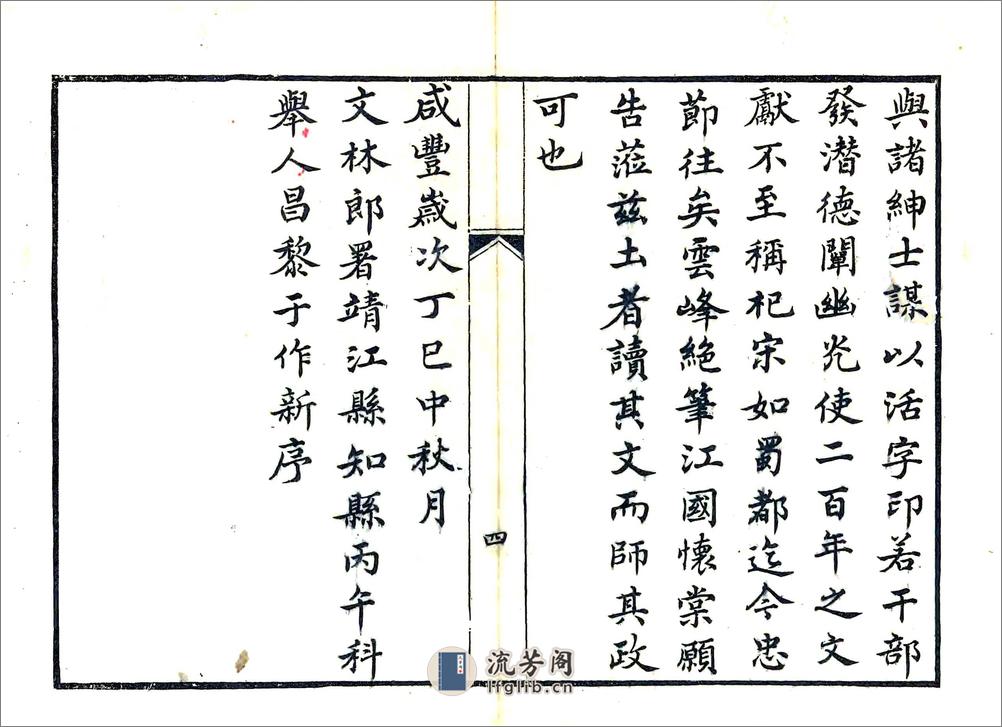 與諸紳士謀以活字印若干部
發潛德闡幽光使二百年之文
獻不至稱杞宋如蜀都迄今忠
節往矣雲峰絕筆江國懷棠願
告蒞茲土者讀其文而師其政
可也
四
咸豐歲次丁巳中秋月
文林郎署靖江縣知縣丙午科
舉人昌黎于作新序
流芳阁
lfglib.cn